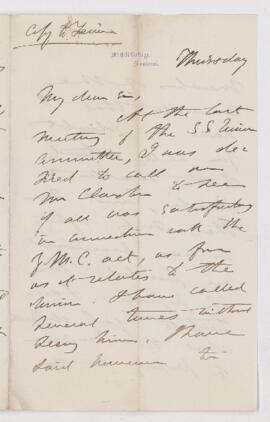 McGill College,
Montreal.
Thursday
My dear Sir,
At the last
meeting of the S S Union
Committee, I was des
ired to call on
Mr Clarke to see
if all was satisfactory
in connection with the
Y.M.C. act, as far
as it relates to the
Union. I have called
several times without
seeing him. I have
said however to